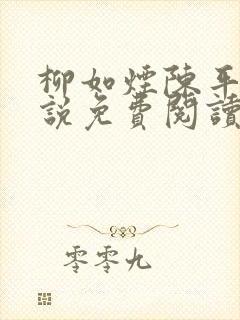 柳如煙陳平
說免費閱讀
零零九